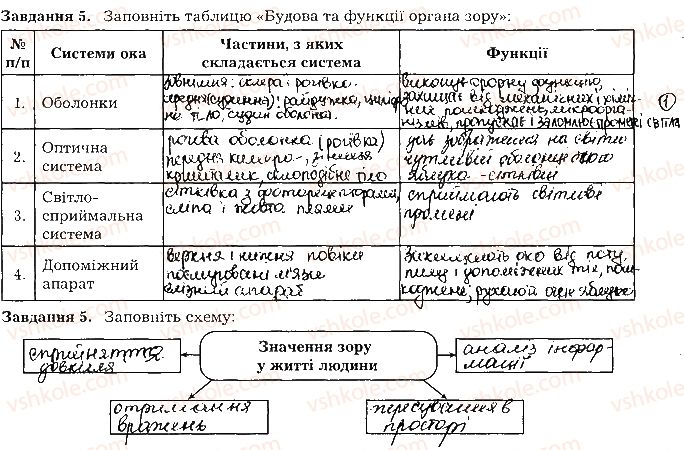 Завдання 5. Заповніть таблицю «Будова та функції органа зору»:
№ п/п
Системи ока
Частини, з яких складається система
Функції
1.
Оболонки
зовнішня: склера і рогівка
середня (судинна): райдужка, циліар-
не тіло, судин оболонка.
виконує опорну функцію,
захищає від механічних і хіміч-
них пошкоджень, мікроорга-
нізмів, пропускає і заломлює промені світла
1
2.
Оптична система
рогова оболонка (рогівка)
передня камера, зіниця
кришталик, склоподібне тіло
зображення на світло
чутливій оболонці
яблука - сітківці
3.
Світло-
сприймальна
система
сітківка з фоторецепторами,
сліпа і жовта плями
сприймають світлові
промені
4.
Допоміжний
апарат
верхня і нижня повіки
посмуговані м'язи
слізний апарат
захищають око від поту,
пилу і
рухають очне яблуко
Завдання 5. Заповніть схему:
сприйняття
довкілля
Значення зору
у житті людини
аналіз інфор
мації
отримання
вражень
пересування в
просторі
vshkole.com